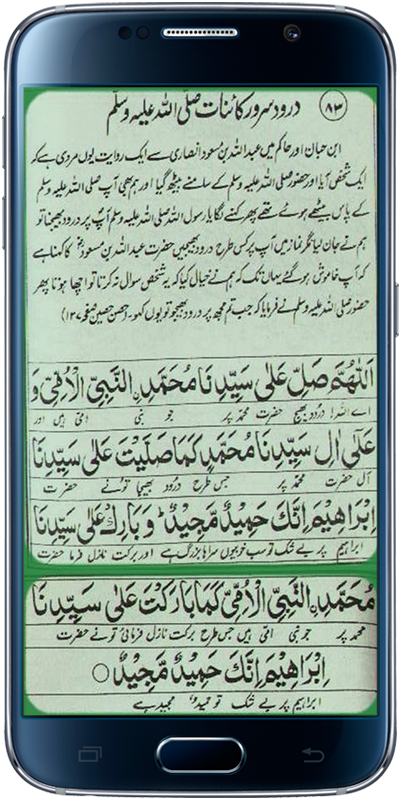 ۸۳ درود سرور کائنات صلی اللہ علیہ وسلم
ابن حبان اور حاکم میں عبداللہ بن مسعود انصاری سے ایک روایت یوں مروی ہے کہ
ایک شخص آیا اور حضور صلی اللہ علیہ وسلم کے سامنے بیٹھ گیا اور ہم بھی آپ صلی اللہ علیہ وسلم
کے پاس بیٹھے ہوئے تھے پھر کہنے لگا یا رسول اللہ صلی اللہ علیہ وسلم آپ پر درود بھیجنا تو
ہم نے جان لیا مگر نماز میں آپ پر کس طرح درود بھیجیں حضرت عبداللہ بن مسعود کا کہنا ہے
کہ آپ خاموش ہو گئے یہاں تک کہ ہم نے خیال کیا کہ یہ شخص سوال نہ کرتا تو اچھا ہوتا پھر
حضور صلی اللہ علیہ وسلم نے فرمایا کہ جب تم مجھ پر درود بھیجو تو یوں کہو۔ (حصن حصین صفحہ ۱۳۷)
اَللّٰهُمَّ صَلِّ عَلٰى سَيِّدِنَا مُحَمَّدِ نِ النَّبِيِّ الْاُمِّيِّ وَ
اے اللہ! درود بھیج حضرت محمد پر جو نبی امی ہیں اور
عَلٰٓى اٰلِ سَيِّدِنَا مُحَمَّدٍ كَمَا صَلَّيْتَ عَلٰى سَيِّدِنَا
آل حضرت محمد پر جس طرح درود بھیجا تونے حضرت
اِبْرَاهِيْمَ اِنَّكَ حَمِيْدٌ مَّجِيْدٌ وَبَارِكْ عَلٰى سَيِّدِنَا
ابراہیم پر بے شک تو سب خوبیوں سراہا بزرگ ہے اور برکت نازل فرما حضرت
مُحَمَّدِ نِ النَّبِيِّ الْاُمِّيِّ كَمَا بَارَكْتَ عَلٰى سَيِّدِنَا
محمد پر جو نبی امی ہیں جس طرح برکت نازل فرمائی تو نے حضرت
اِبْرَاهِيْمَ اِنَّكَ حَمِيْدٌ مَّجِيْدٌ ○
ابراہیم پر بے شک تو حمید مجید ہے